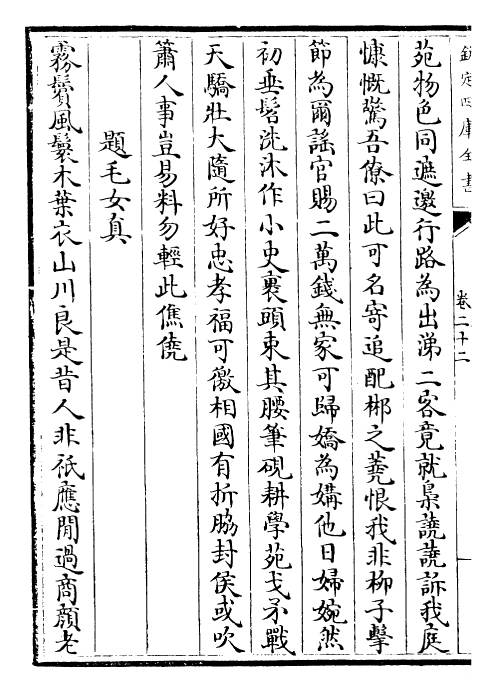 欽定四庫全書
卷二十二
苑物色同遮邀行路為出涕二客竟就梟譊譊訴我庭
慷慨驚吾僚曰此可名寄追配郴之蕘恨我非柳子擊
節為爾謡官賜二萬錢無家可歸嬌為媾他日婦婉然
初垂髫洗沐作小史裹頭束其腰筆硯耕學苑戈矛戰
天驕壯大隨所好忠孝福可徼相國有折脇封侯或吹
簫人事豈易料勿輕此僬僥
題毛女真
霧鬢風鬟木葉衣山川良是昔人非祇應閒過商顔老